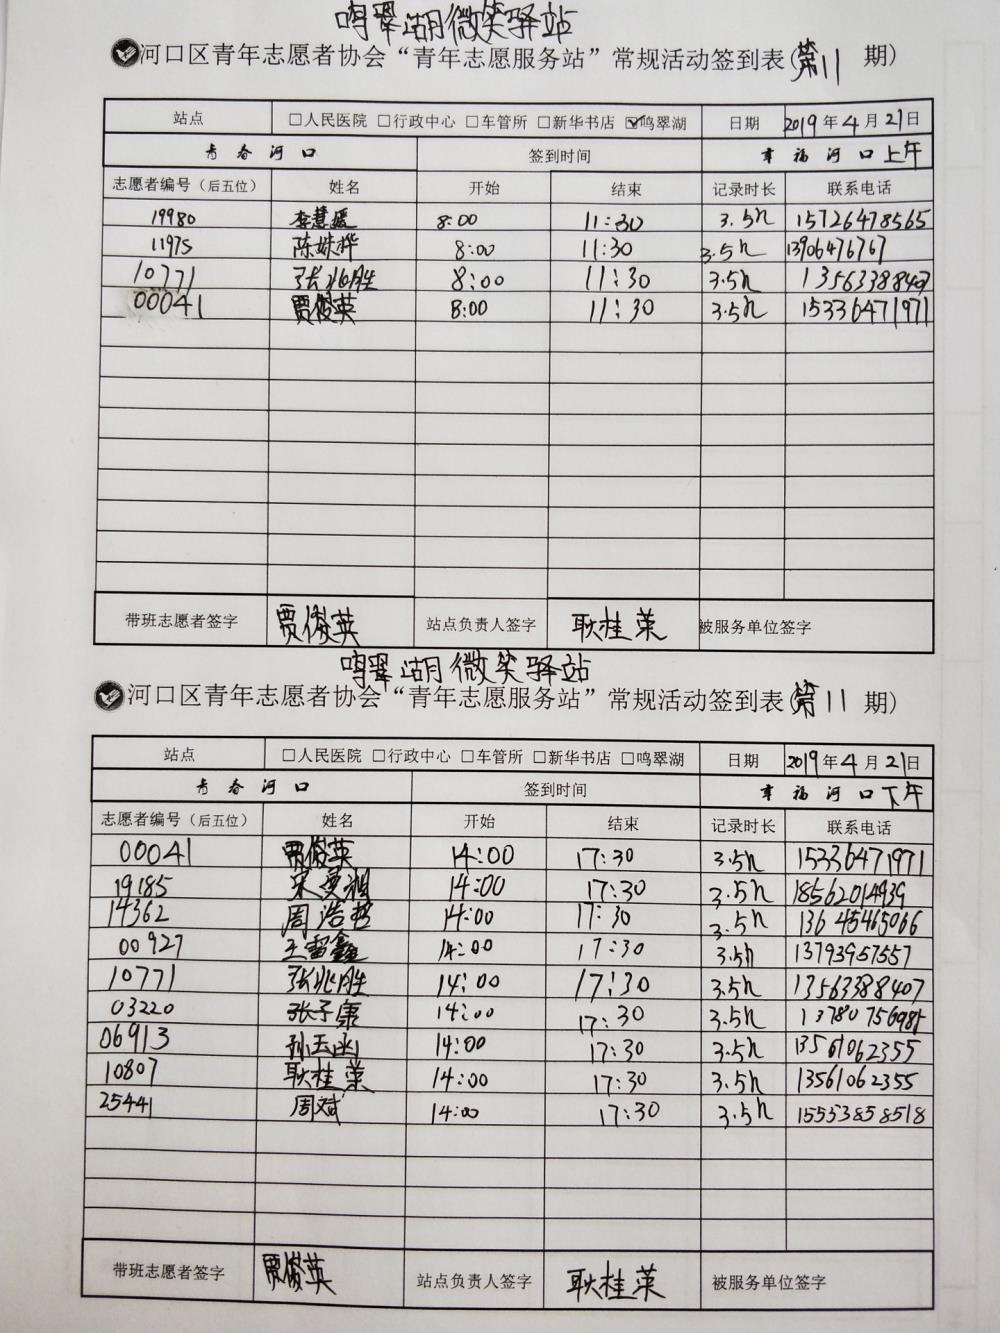 鸣翠湖微笑驿站
河口区青年志愿者协会“青年志愿服务站”常规活动签到表(第11期)
站点 □人民医院 □行政中心 □车管所 □新华书店 ☑鸣翠湖 日期 2019年4月21日
青春河口 签到时间 幸福河口 上午
志愿者编号（后五位） 姓名 开始 结束 记录时长 联系电话
19980 李慧媛 8:00 11:30 3.5h 15726478565
11975 陈姝桦 8:00 11:30 3.5h 13906476767
10771 张兆胜 8:00 11:30 3.5h 13563388407
00041 贾俊英 8:00 11:30 3.5h 15336471971
带班志愿者签字 贾俊英 站点负责人签字 耿桂荣 被服务单位签字
鸣翠湖微笑驿站
河口区青年志愿者协会“青年志愿服务站”常规活动签到表(第11期)
站点 □人民医院 □行政中心 □车管所 □新华书店 □鸣翠湖 日期 2019年4月21日
青春河口 签到时间 幸福河口 下午
志愿者编号（后五位） 姓名 开始 结束 记录时长 联系电话
00041 贾俊英 14:00 17:30 3.5h 15336471971
19185 宋曼湘 14:00 17:30 3.5h 18562014939
14362 周浩哲 14:00 17:30 3.5h 13645465066
00927 王雷鑫 14:00 17:30 3.5h 13793957557
10771 张兆胜 14:00 17:30 3.5h 13563388407
03220 张子康 14:00 17:30 3.5h
06913 孙玉函 14:00 17:30 3.5h 13561062355
10807 耿桂荣 14:00 17:30 3.5h 13561062355
25441 周斌 14:00 17:30 3.5h 15553858518
带班志愿者签字 贾俊英 站点负责人签字 耿桂荣 被服务单位签字